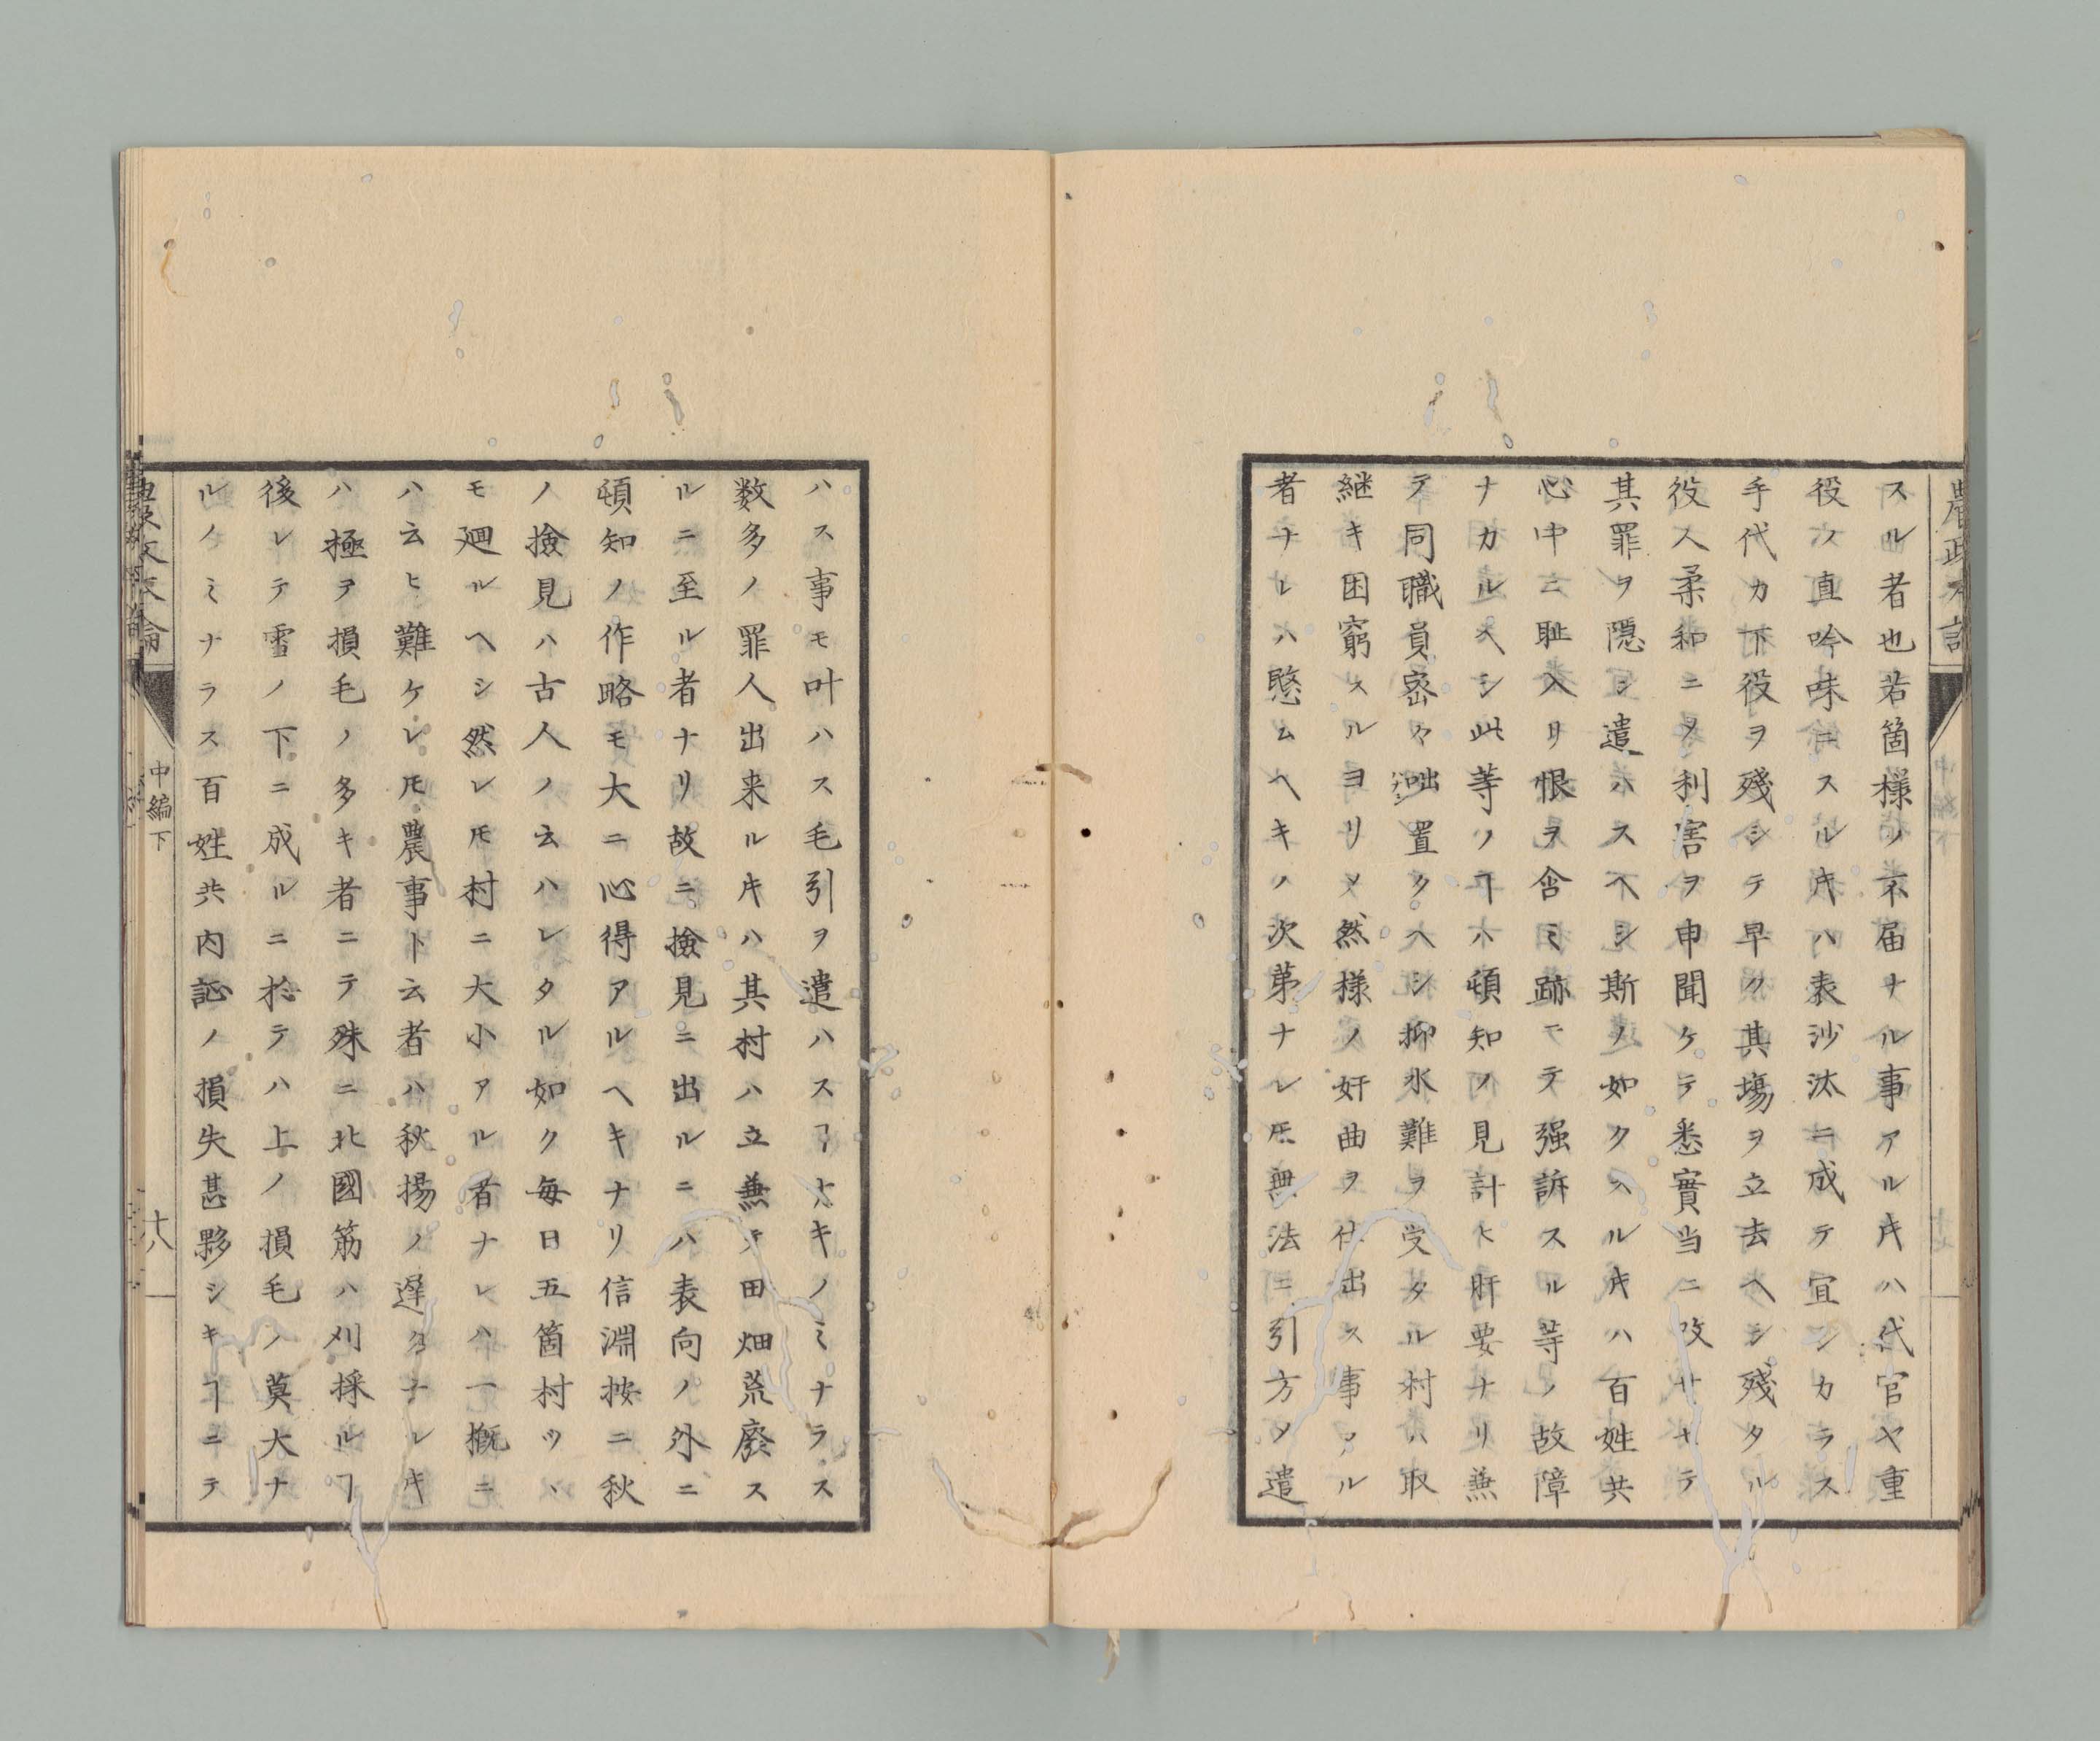 農政本論
スル者也若箇様ノ不届ナル事アルキハ代官ヤ重
役ノ直吟味ニスルキハ表沙汰ニ成テ宜シカラス
手代カ下役ヲ殘シテ早ク其場ヲ立去ヘシ殘タル
役人柔和ニメ利害ヲ申聞ケテ悉實当ニ改サセテ
其罪ヲ隠シ遣ハスヘシ斯ノ如クスルキハ百姓共
心中ニ耻入リ恨ヲ含ミ跡モテ强訴スル等ノ故障
ナカルヘシ此等ノヿハ頓知ノ見計ヒ肝要ナリ兼
テ同職員密々咄置クヘシ抑水難ヲ受タル村ハ取
継キ困窮スルヨリメ然様ノ奸曲ヲ仕出ス事アル
者ナレハ愍ムヘキノ次第ナレ𪜈無法ニ引方メ遣
ハス事モ叶ハス毛引ヲ遣ハスヿナキノミナラス
数多ノ罪人出来ルキハ其村ハ立兼テ田畑荒廢ス
ルニ至ル者ナリ故ニ撿見ニ出ルニハ表向ノ外ニ
頓知ノ作略モ大ニ心得アルヘキナリ信淵按ニ秋
ノ撿見ハ古人ノ云ハレタル如ク毎日五箇村ツヽ
モ廻ルヘシ然レ𪜈村ニ大小アル者ナレハ一概ニ
ハ云ヒ難ケレ𪜈農事ト云者ハ秋揚ノ遅タナレキ
ハ極ヲ損毛ノ多キ者ニテ殊ニ北國筋ハ刈採ルヿ
後レテ雪ノ下ニ成ルニ於テハ上ノ損毛ノ莫大ナ
ルノミナラス百姓共内証ノ損失甚夥シキヿニテ
農政本論
中編下
十八